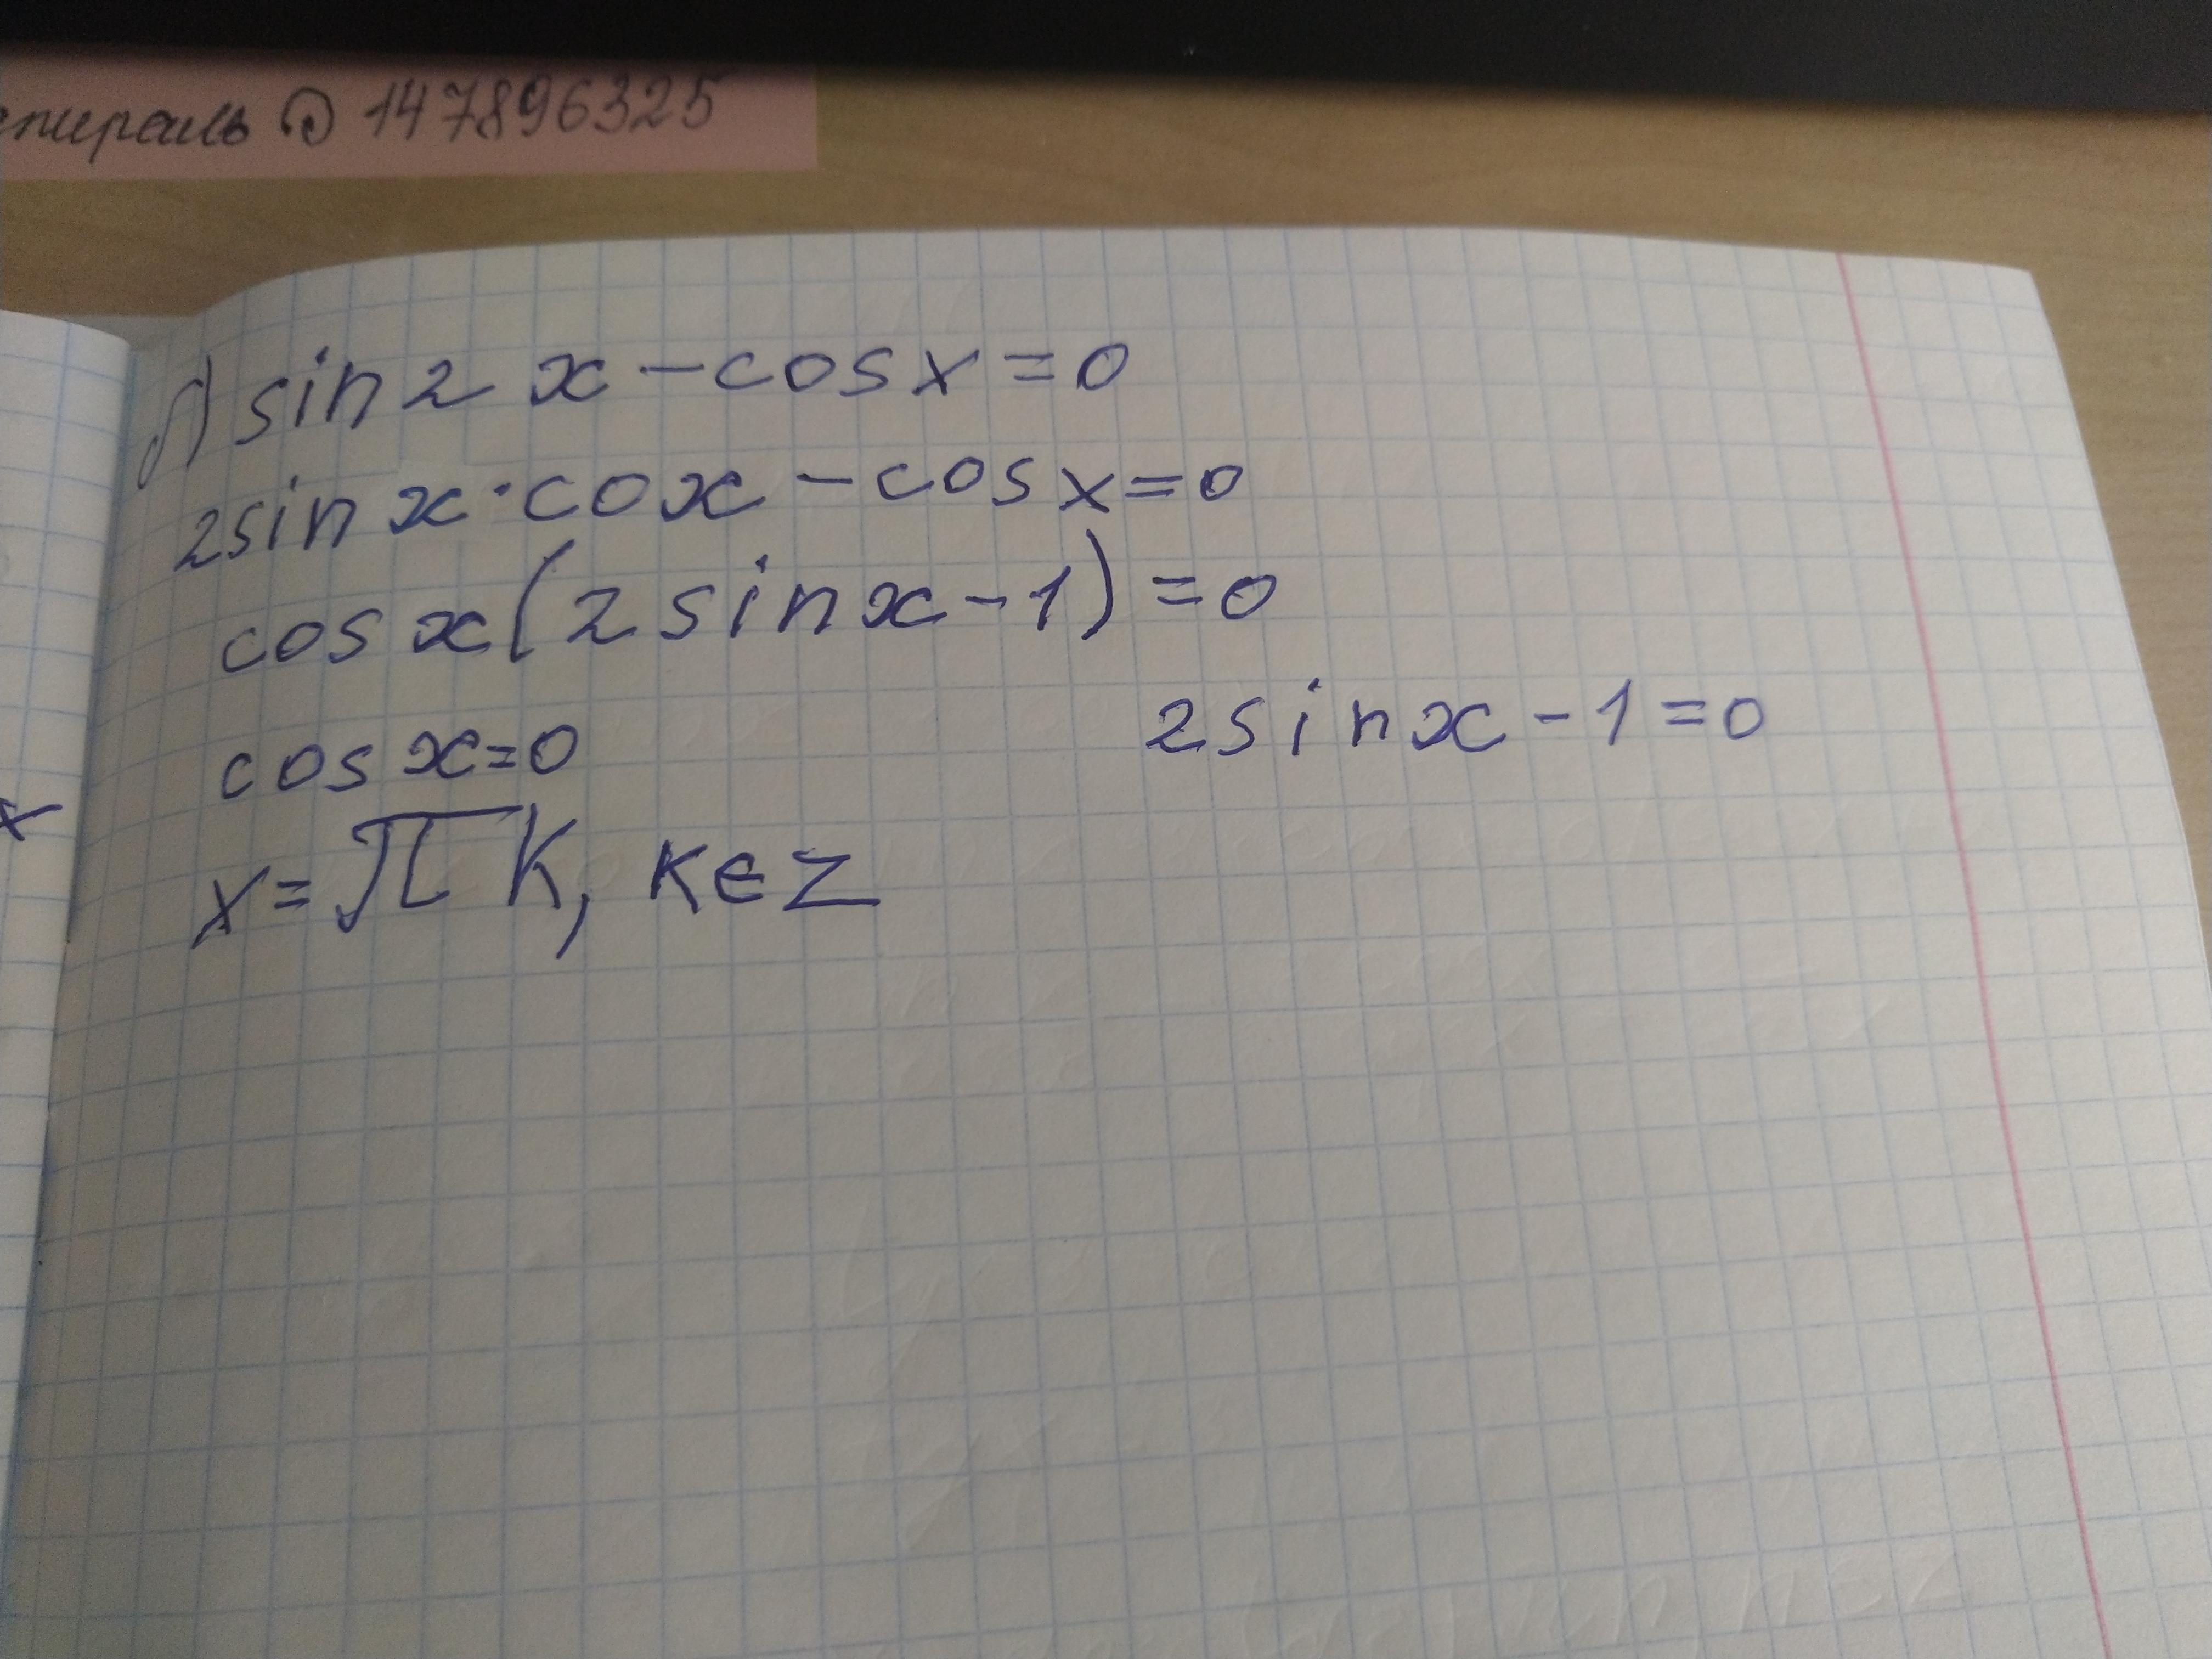 спираль 147896325
б) sin 2 x - cos x = 0
2sin x · cox - cos x = 0
cos x (2 sin x - 1) = 0
cos x = 0 2 sin x - 1 = 0
x = π K, K ∈ Z
x